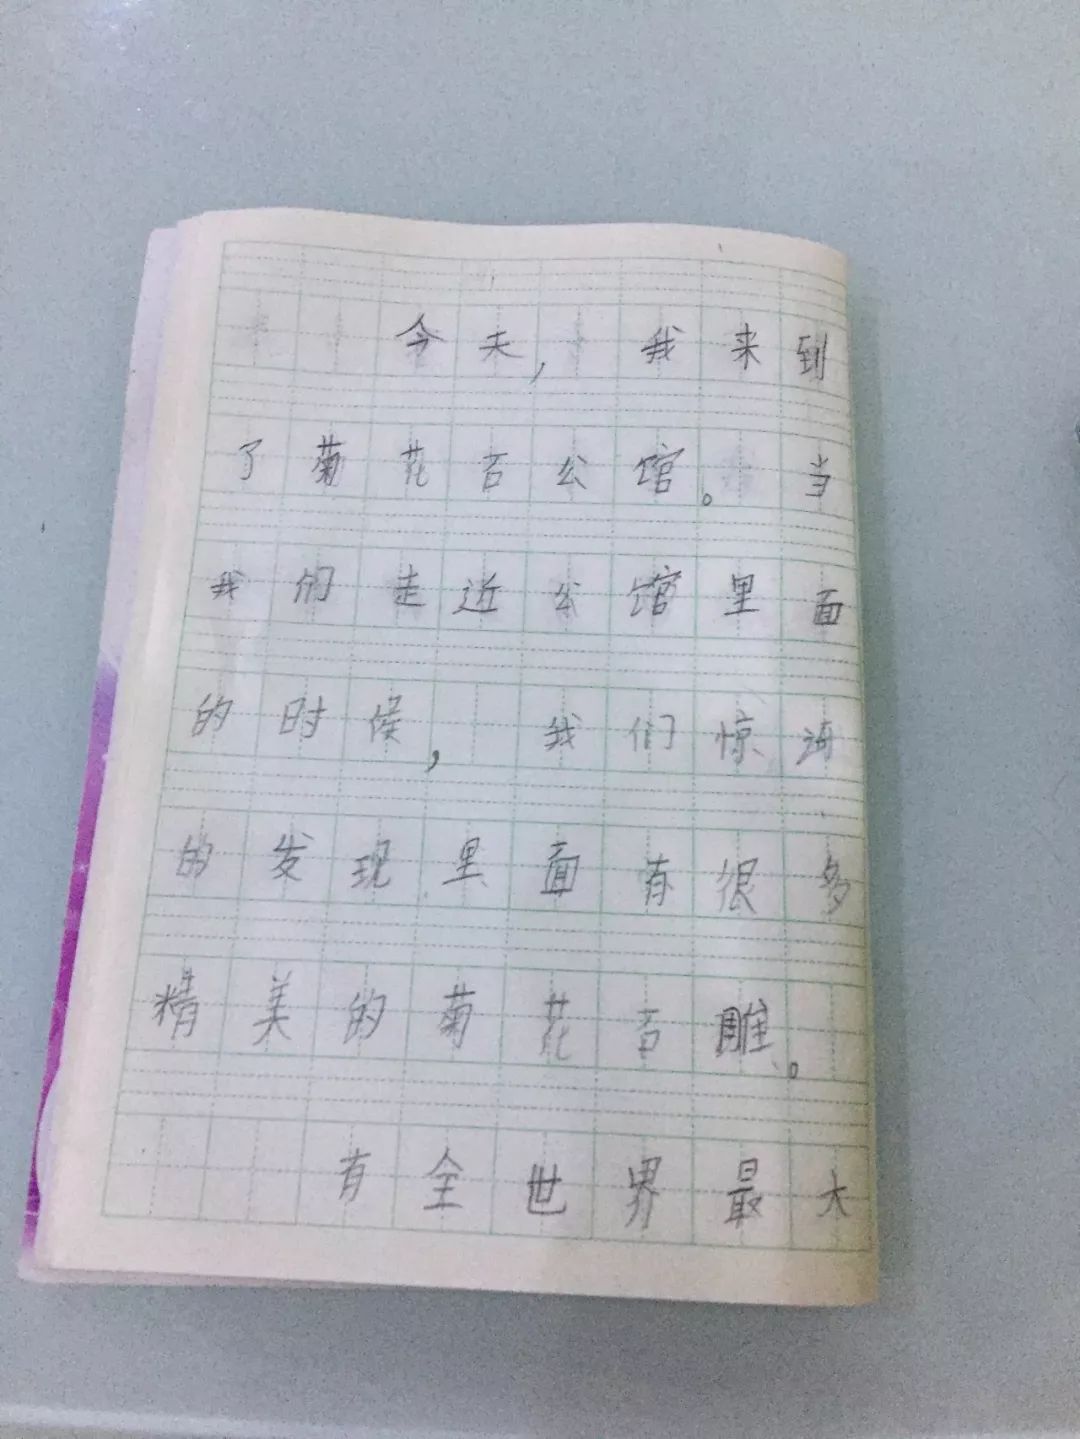 今天，我来到
了菊花石公馆。当
我们走近公馆里面
的时候，我们惊讶
的发现里面有很多
精美的菊花石雕。
有全世界最大